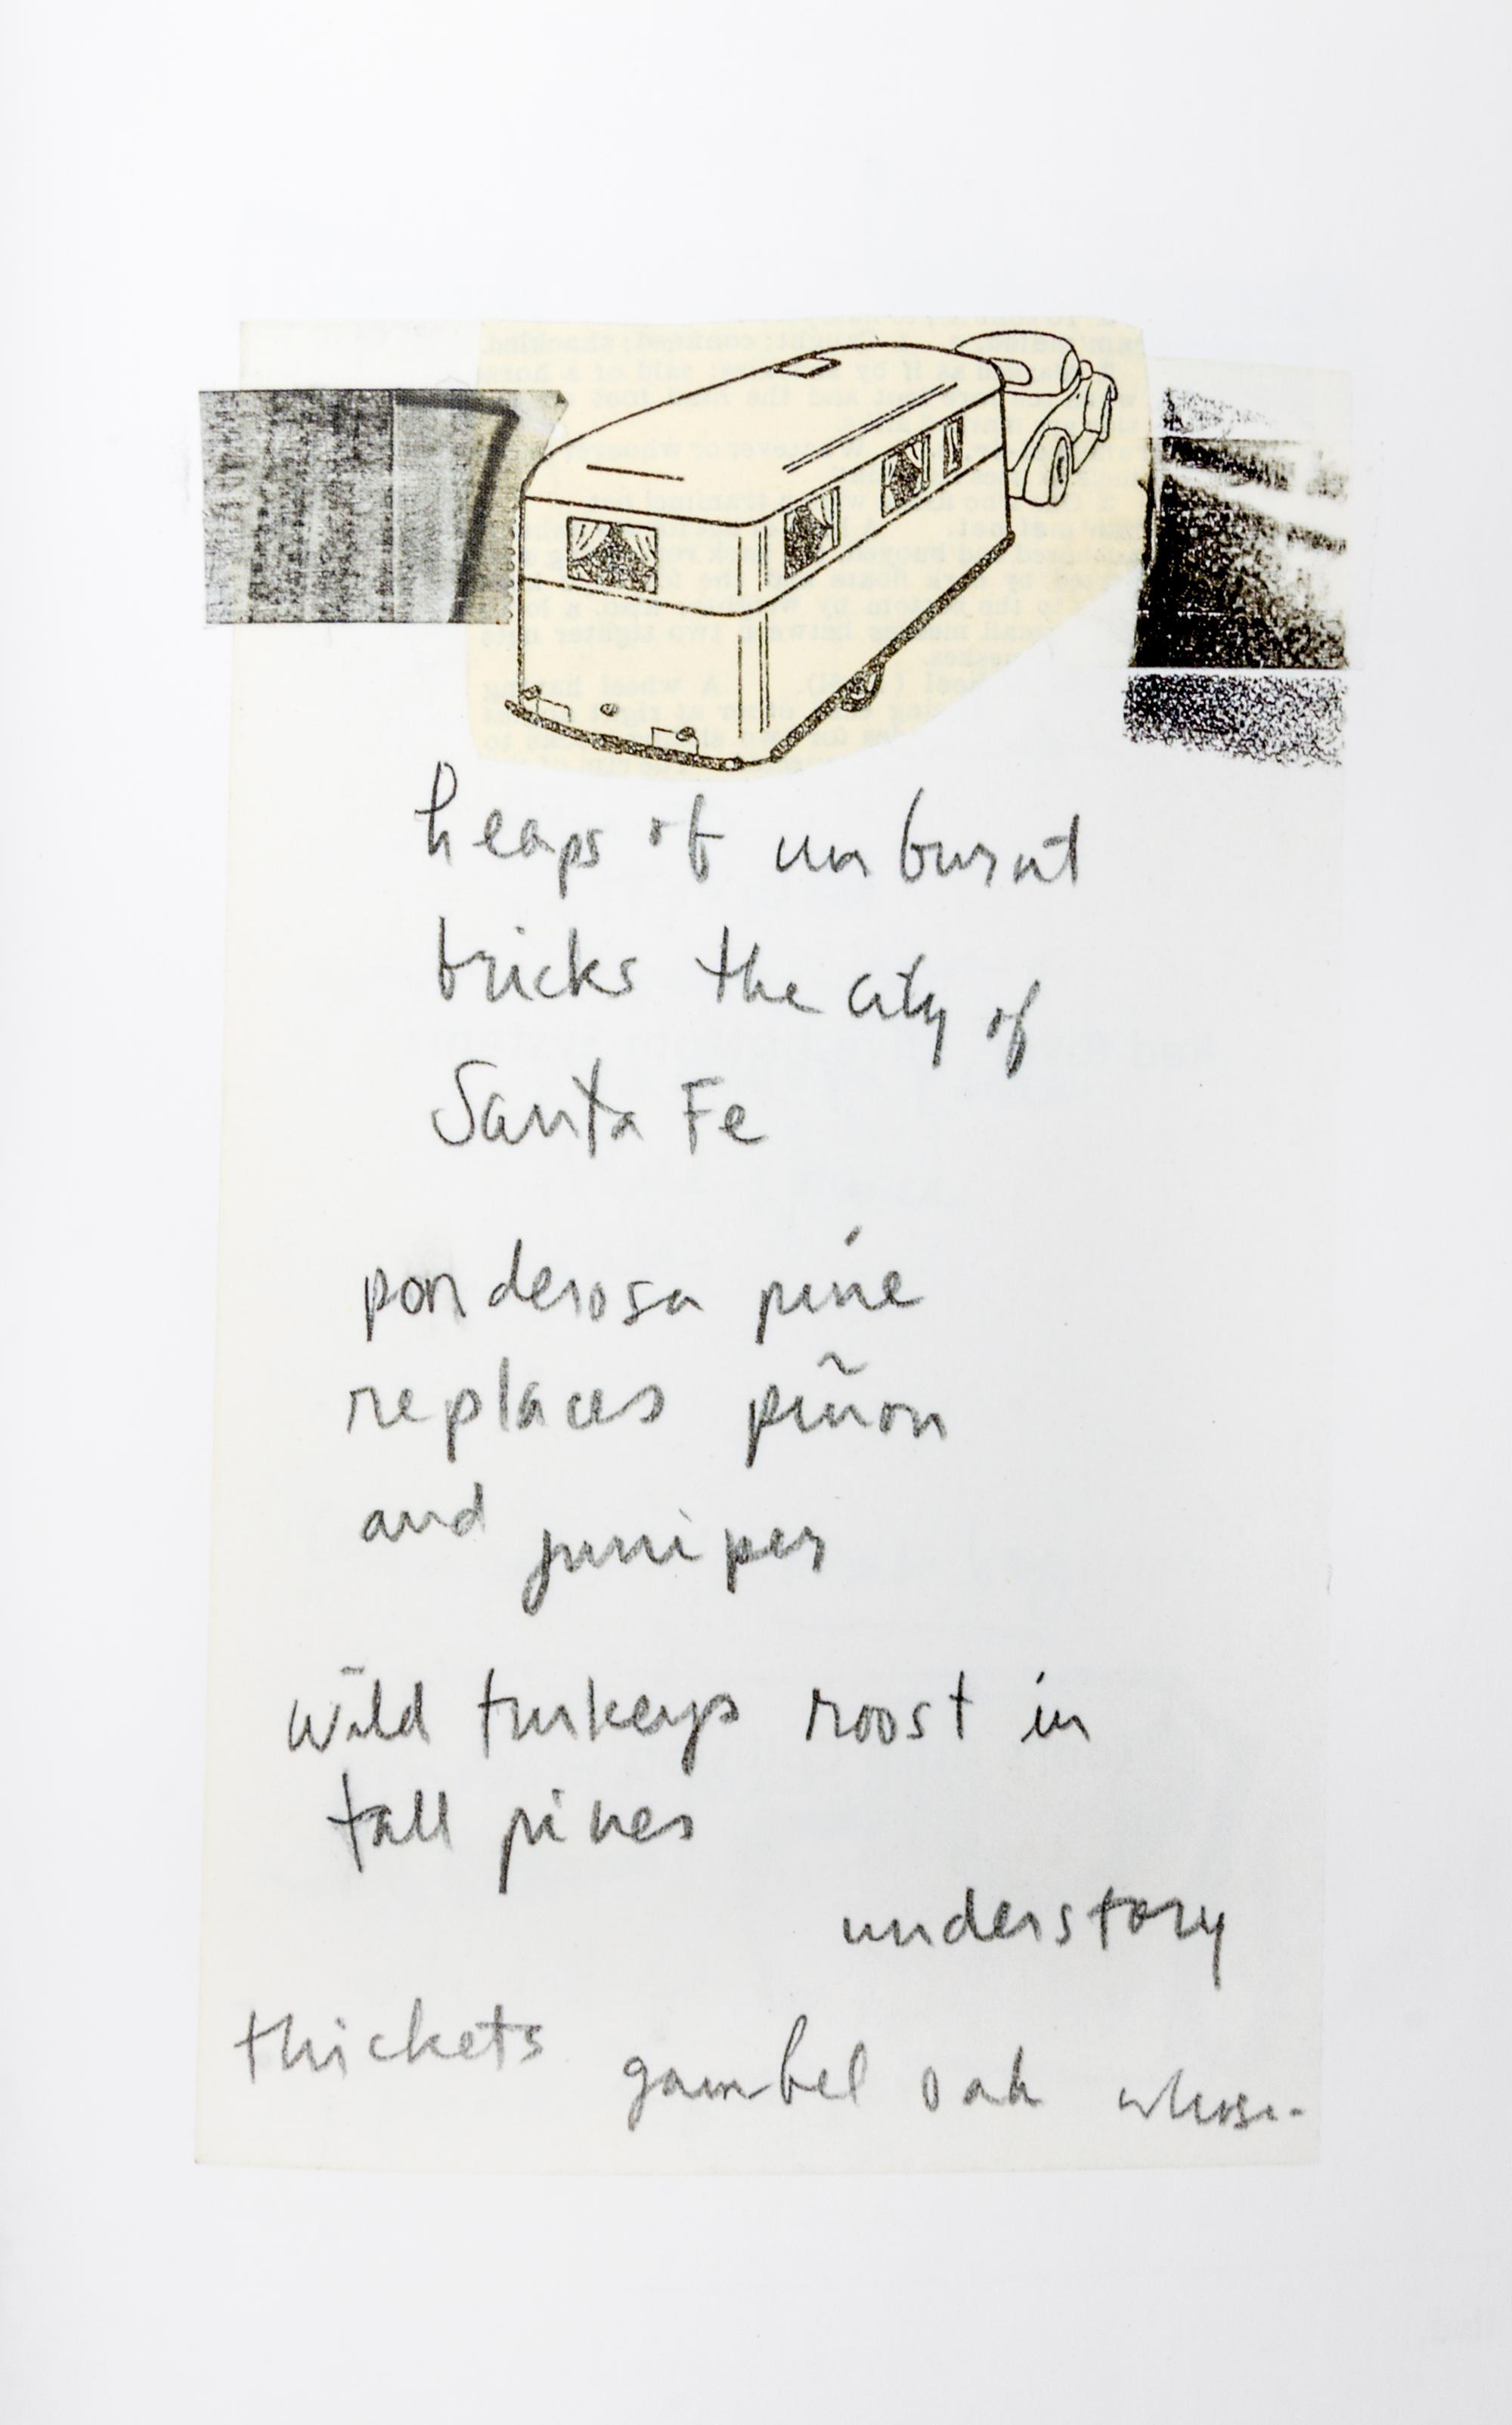 heaps of unburnt
bricks the city of
Santa Fe
ponderosa pine
replaces piñon
and juniper
wild turkeys roost in
tall pines
understory
thickets gambel oak whose-